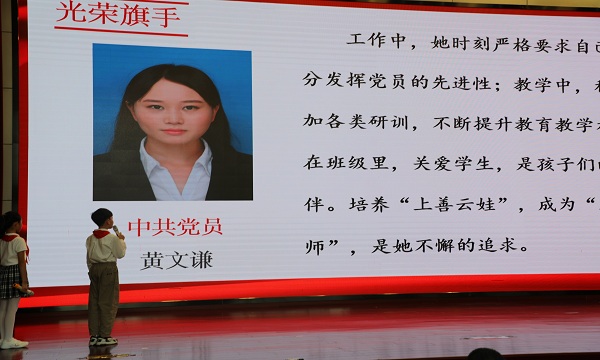 光荣旗手
中共党员
黄文谦
工作中，她时刻严格要求自己
分发挥党员的先进性；教学中，积
加各类研训，不断提升教育教学
在班级里，关爱学生，是孩子们
伴。培养“上善云娃”，成为“
师”，是她不懈的追求。